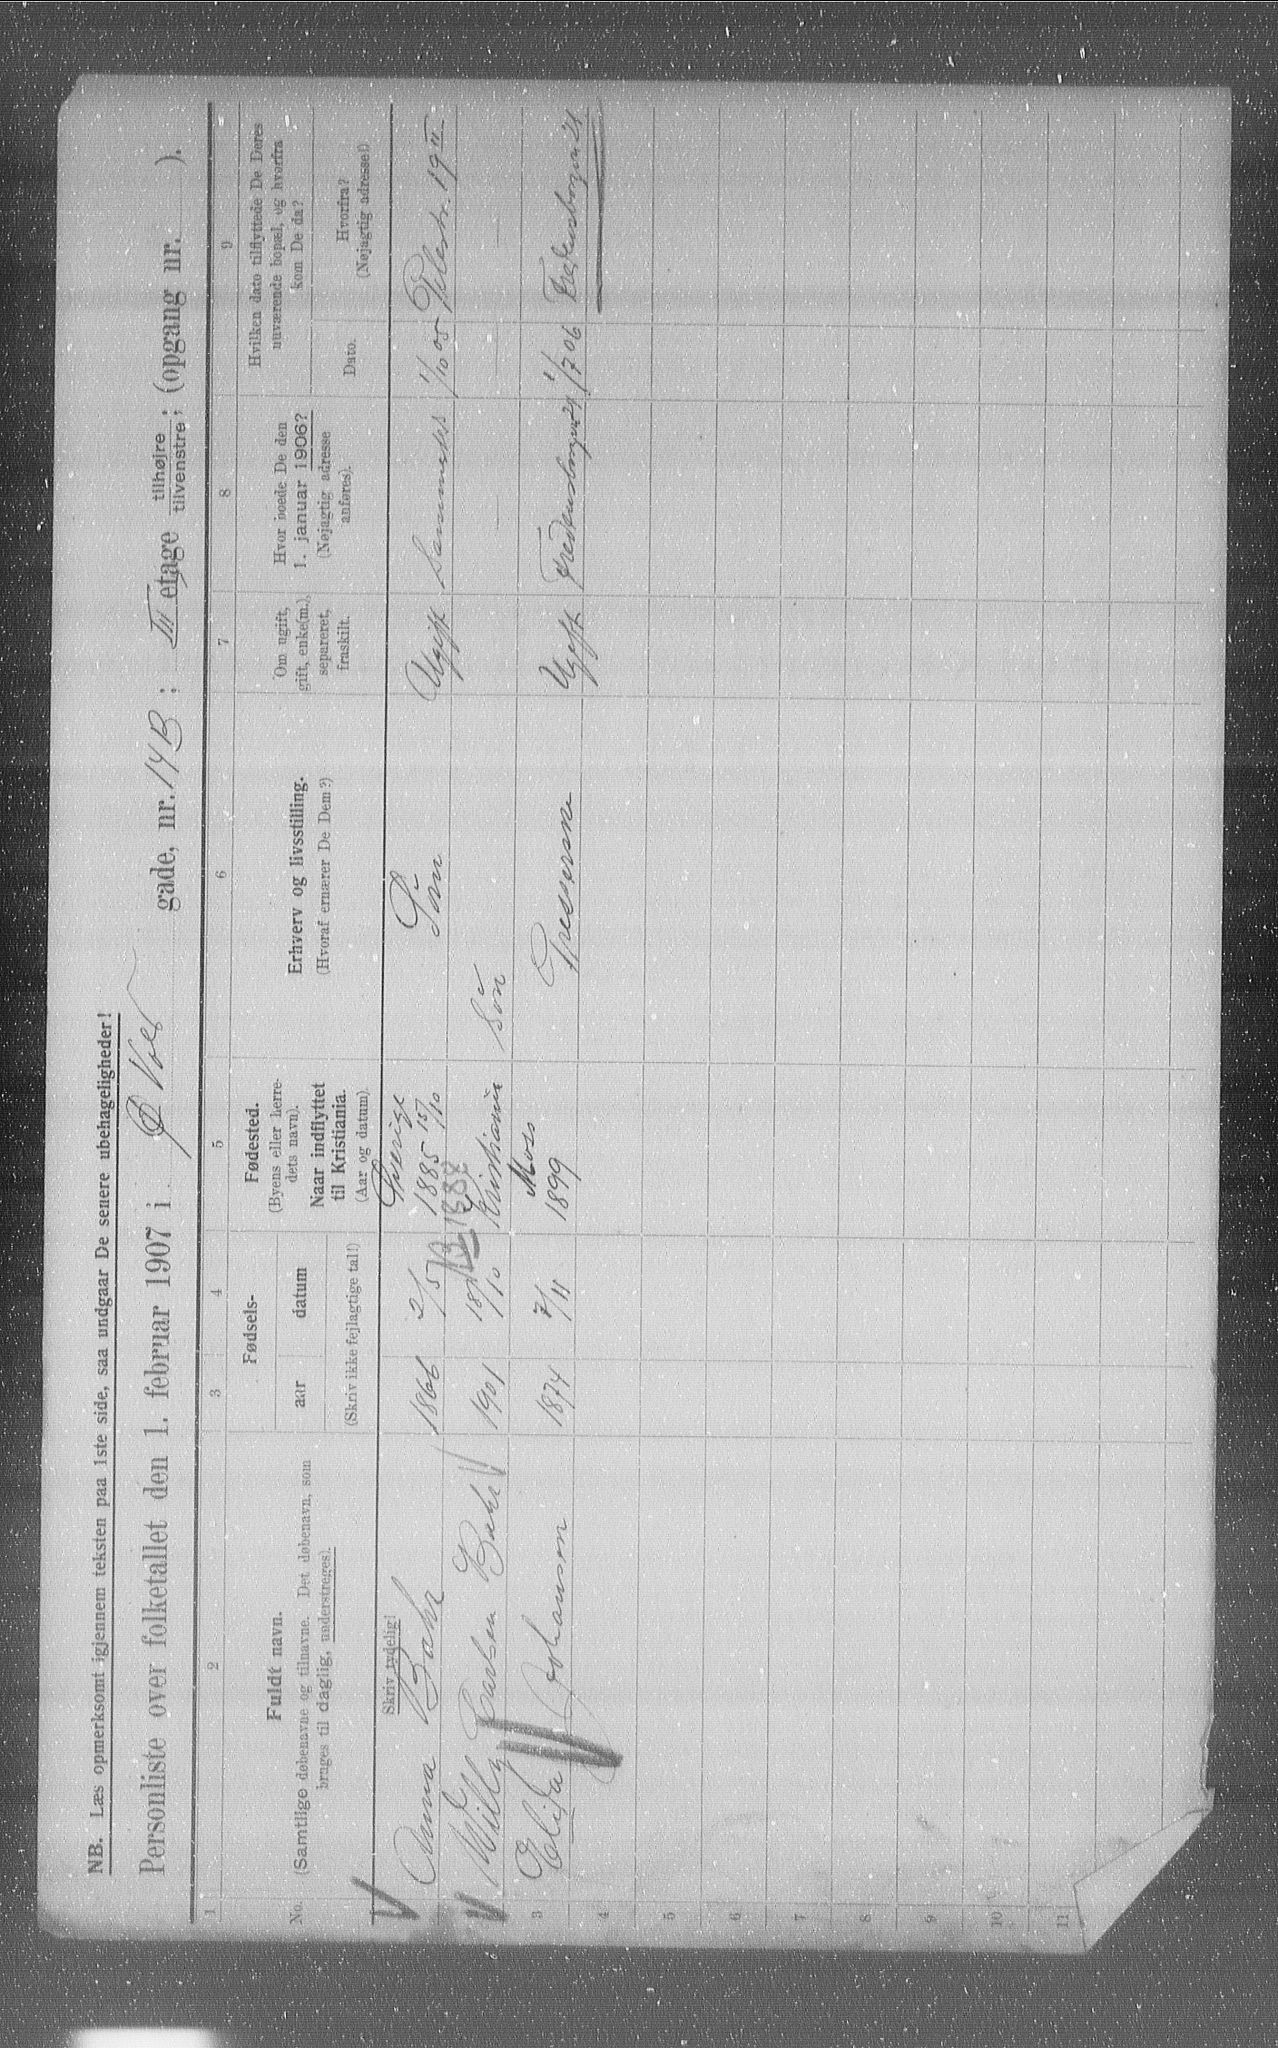 NB. Læs opmerksomt igjennem teksten paa 1ste side, saa undgaar De senere ubehageligheder!
Personliste over folketallet den 1. februar 1907 i gade, nr. 14 B; III etage tilhøjre; tilvenstre; (opgang nr. ).
1 2 3 4 5 6 7 8 9
No.
Fuldt navn.
(Samtlige døbenavne og tilnavne. Det døbenavn, som
bruges til daglig, understreges).
Skriv tydelig!
Fødsels-
aar datum
(Skriv ikke fejlagtige tal!)
Fødested.
(Byens eller herre-
dets navn).
Naar indflyttet
til Kristiania.
(Aar og datum).
Erhverv og livsstilling.
(Hvoraf ernærer De Dem?)
Om ugift,
gift, enke(m.),
separeret,
fraskilt.
Hvor boede De den
1. januar 1906?
(Nøjagtig adresse
anføres).
Hvilken dato tilflyttede De Deres
nuværende bopæl, og hvorfra
kom De da?
Dato.
Hvorfra?
(Nøjagtig adresse!)
Anna 1866 2/5 Sverige 1885 15/10 Ugift Sammesteds 1/10 05 19 II
Willy Carlsen 1901 18/10 Kristiania Søn
3 Elida Johansen 1874 7/11 Moss 1899 Presserske Ugift Fredensborgvn 21 1/7 06 Fredensborgvn 21
4
5
6
7
8
9
10
11